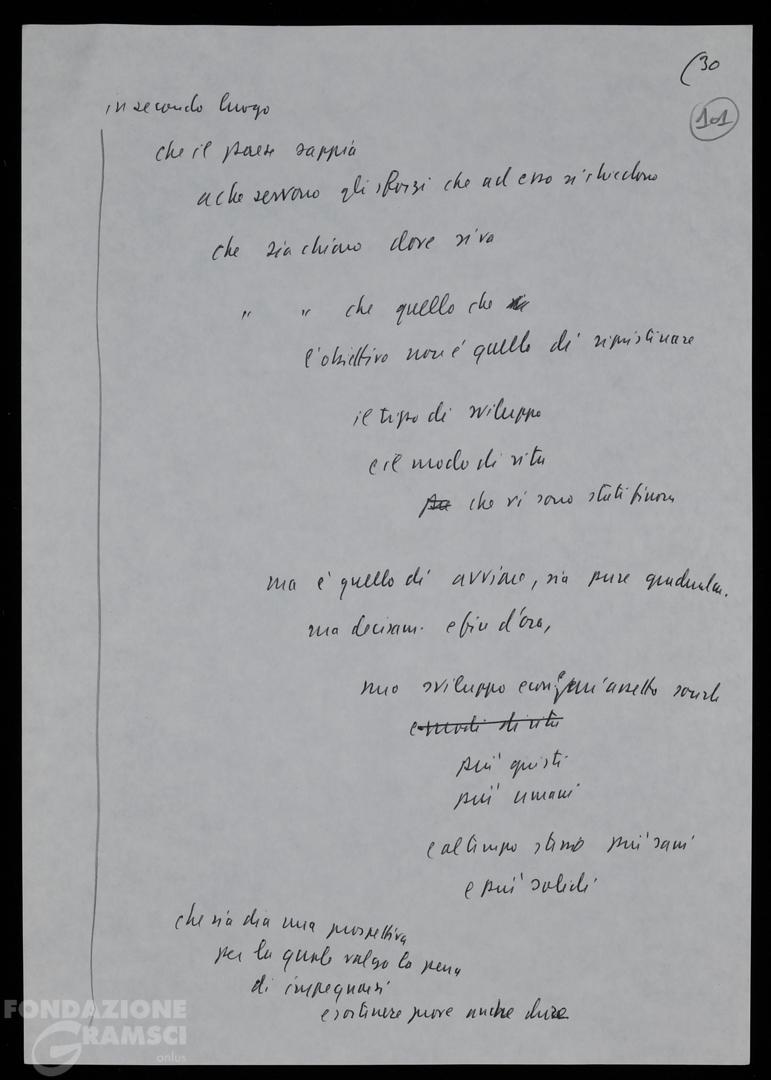 (30
101
in secondo luogo
che il paese sappia
a che servono gli sforzi che ad esso si chiedono
che sia chiaro dove si va
" " che quello che
l'obiettivo non è quello di ripristinare
il tipo di sviluppo
e il modo di vita
che vi sono stati finora
ma è quello di avviare, sia pure gradualm.
ma decisam. e fin d'ora,
uno sviluppo econ. e un assetto sociale
e modi di vita
più giusti
più umani
e al tempo stesso più sani
e più solidi
che si dia una prospettiva
per la quale valga la pena
di impegnarsi
e sostenere prove anche dure
FONDAZIONE
GRAMSCI
onlus